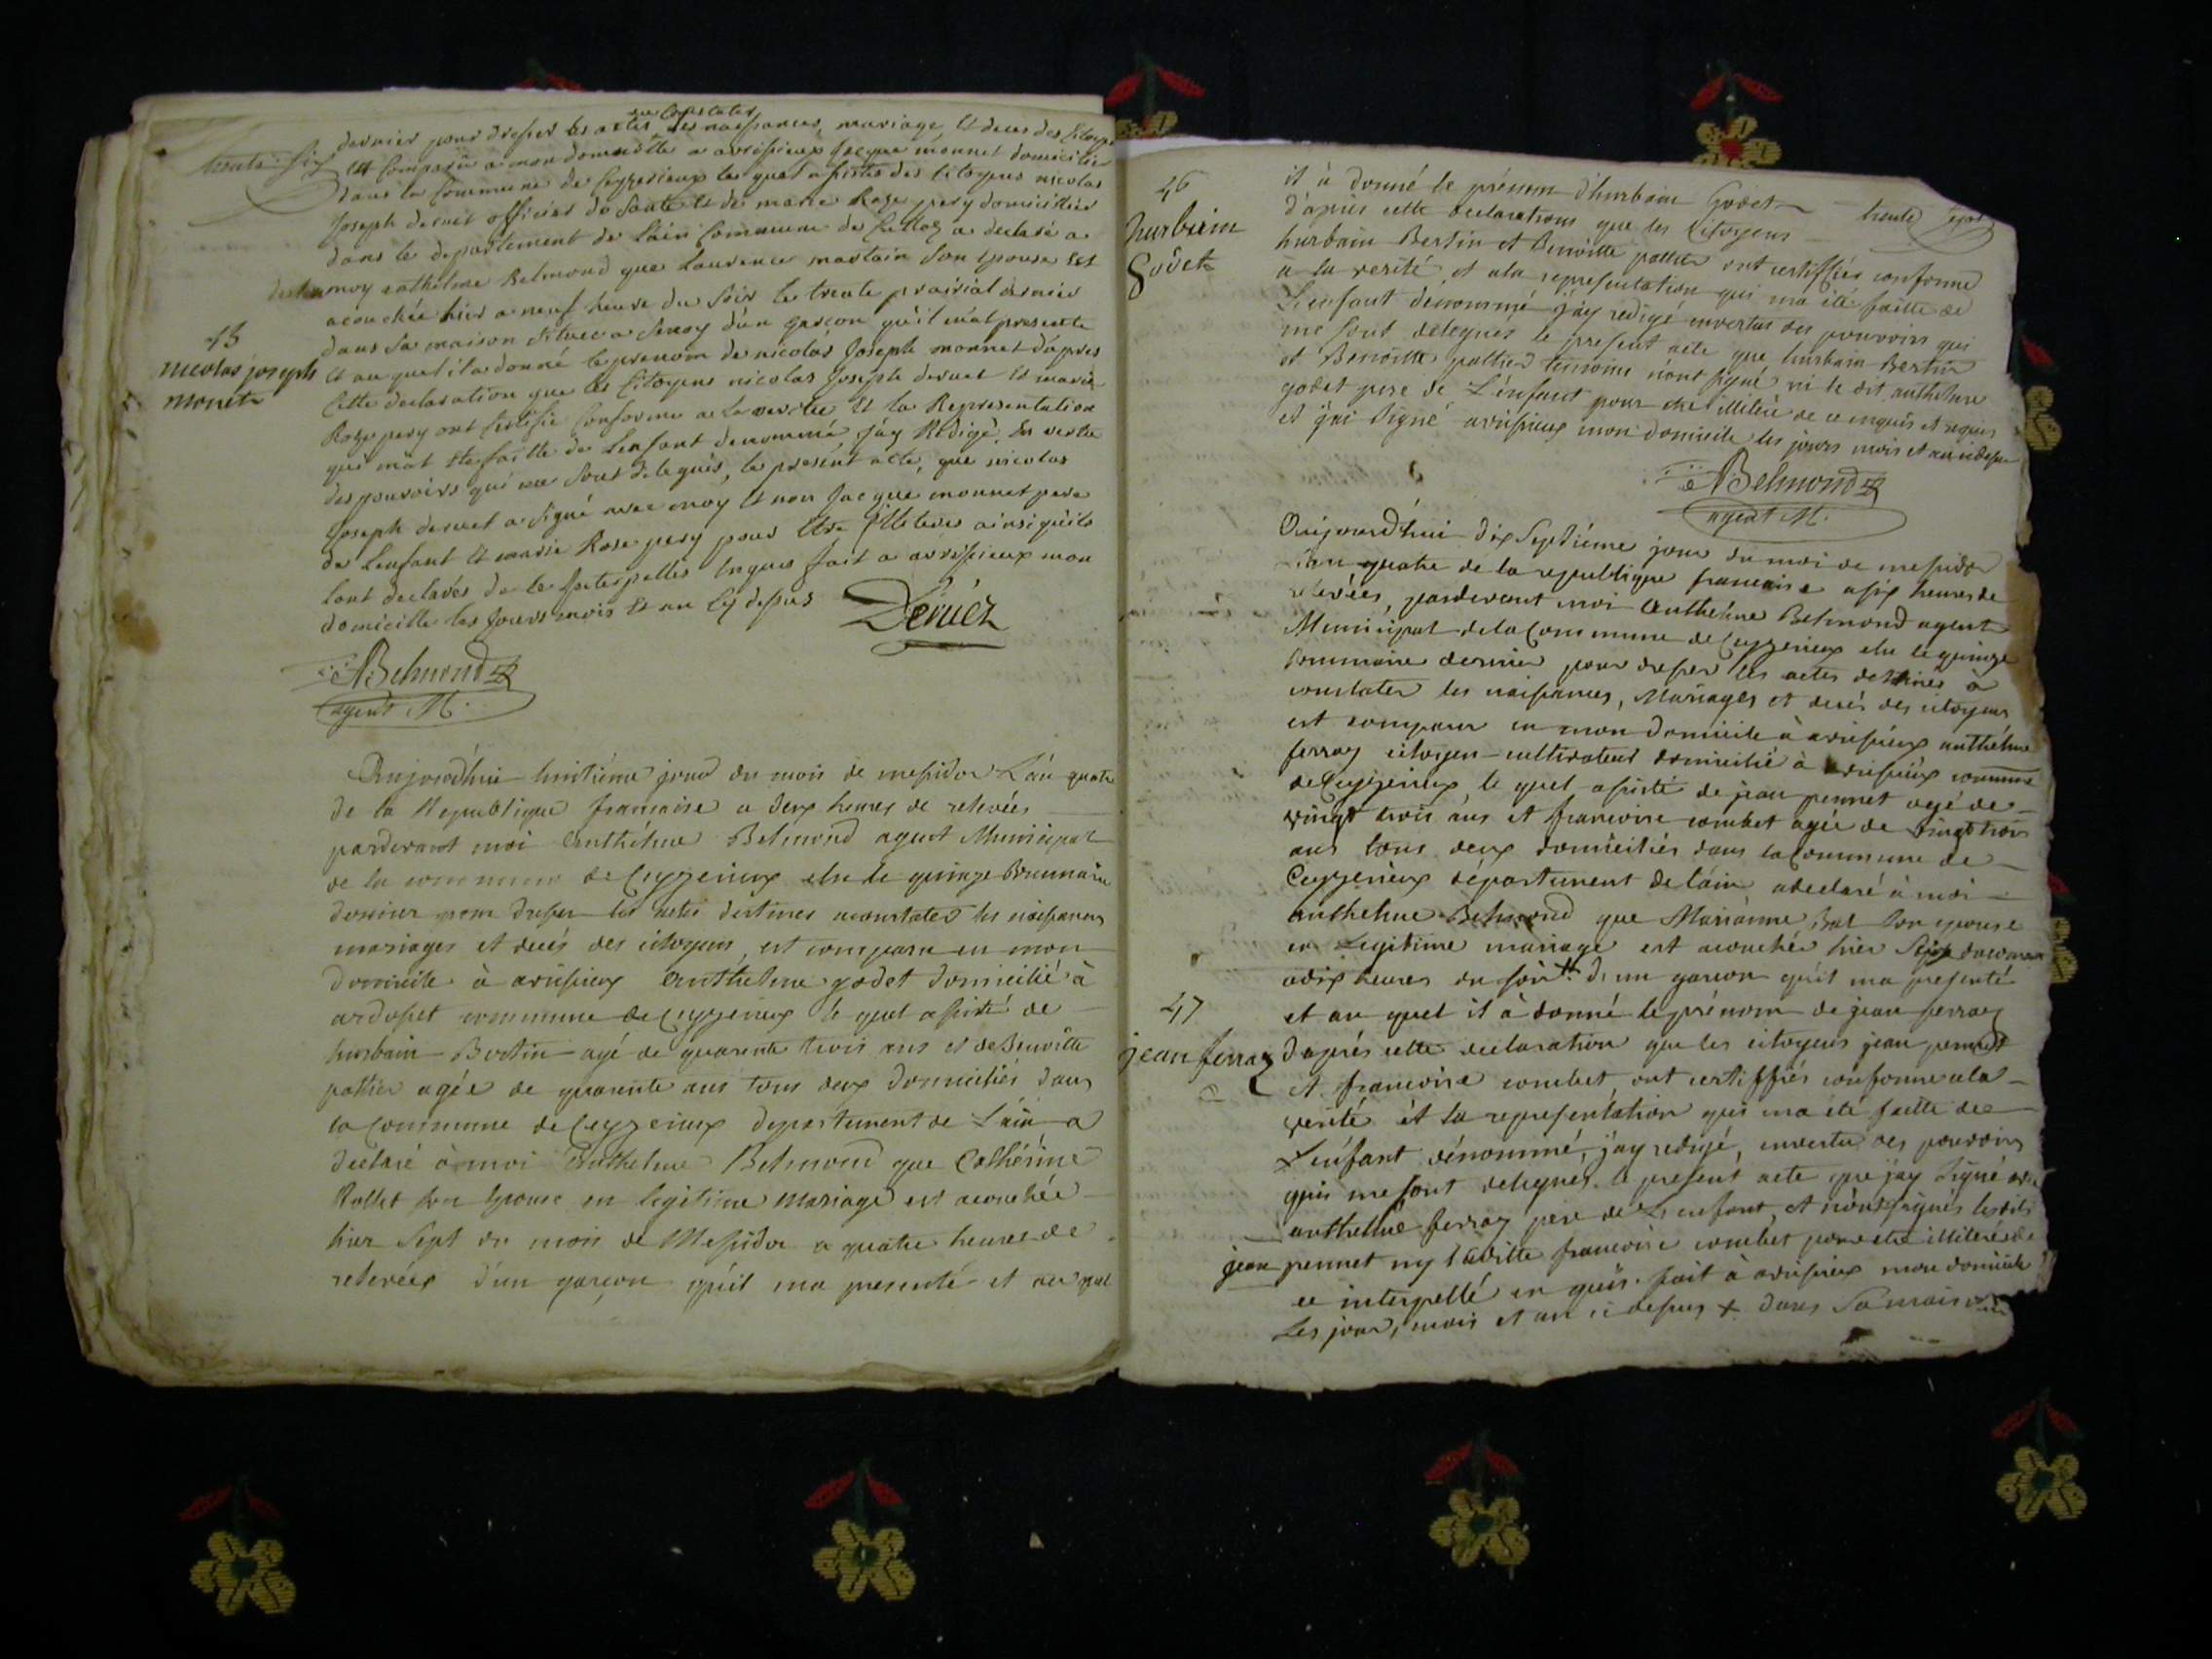 trente six
dernier pour dresser les actes des naissances, mariage, et deces des Citoyens
ou Constater
est Comparu a mon domicille a avrissieux Jacque monnet domicilié
dans la Commune de Ceyzerieux le quel assistes des Citoyens nicolas
Joseph deruet officier de Santé et de marie Roze pery domicillies
dans le departement de Lain Commune de a declaré a
moy anthelme Belmond que Laurence martain Son Epouse Est
acouchée hier a neuf heure du Soir le trente prairial dernier
dans Sa maison Situee a d'un garcon qu'il m'at presente
13
nicolas joseph
monet
Et au quel il a donné le prenom de nicolas Joseph monnet d'apres
Cette declaration que les Citoyens nicolas Joseph deruet Et marie
Roze pery ont Certifie Conforme a la veritee Et la Representation
qui m'at Ete faitte de Lenfant denommé, J'ay Redigé, En vertu
des pouvoirs qui me Sont delegués, le present acte, que nicolas
Joseph deruet a Signé avec moy Et non Jacque monnet pere
de Lenfant Et marie Rose pery pour Etre illeteres ainsi quils
Lont declarés de le faite Enquis fait a avrissieux mon
domicille les Jours mois Et an Cy dessus
Deruet
ABelmond
agent M.
Aujourdhui huitiéme jour du mois de messidor L'an quatre
de la Republique francaise a deux heures de relevées
pardevant moi Anthelme Belmond agent Municipal
de la commune de Ceyzerieux elu le quinze Brumaire
dernier pour dresser les actes destines a constater les naissances
mariages et decés des citoyens, est comparu en mon
domicile à avrissieux Anthelme godet domicilié à
ardosset commune de Ceyzerieux le quel assisté de
hurbain Bertin agé de quarente trois ans et de Benoitte
pallier agée de quarente ans tous deux domiciliés dans
la Commune de Ceyzerieux departement de L'ain a
declaré à moi Anthelme Belmond que Cathérine
Rollet Son Epouse en legitime mariage est acouchée
hier Sept du mois de Messidor a quatre heures de
relevées d'un garcon qu'il ma presenté et au quel
46
hurbain
Godet
trente sept
il à donné le prénom d'hurbain Godet
d'apres cette declarations que les Citoyens
hurbain Bertin et Benoitte pallier ont certiffiés conforme
à la verité, et a la representation qui ma été faitte de
L'enfant denommé j'ay redigé envertus des pouvoirs qui
me Sont delegués le present acte que hurbain Bertin
et Benoitte pallier temoins n'ont signé ni le dit anthelme
godet pere de L'énfant pour etre illiteré de ce enquis et requis
et j'ai Signé avrissieux mon domicile les jours mois et an cidessus
ABelmond
agent M.
Aujourd'hui dix Septiéme jour du moi de messidor
L'an quatre de la republique francaise a six heures de
relevées, pardevant moi Anthelme Belmond agent
Municipal de la Commune de Ceyzerieux elu le quinze
brumaire dernier pour dresser les actes destinés à
constater les naissances, Mariages et decés des citoyens
est comparu en mon domicile à avrissieux anthelme
ferray citoyen cultivateur domicilié à avrissieux commune
de Ceyzerieux le quel assisté de jean pennet agé de
vingt trois ans et francoise combet agée de vingt trois
ans tous deux domiciliés dans la Commune de
Ceyzerieux département de l'ain a declaré à moi
anthelme Belmond que Marianne Son epouse
en Legitime mariage est acouchée hier Seize du courant
a dix heures du Soir + d'un garcon qu'il ma presenté
47
jean ferraz
et au quel il à donné le prénom de jean ferraz
d'aprés cette declaration que les citoyens jean pennet
et francoise combet, ont certiffiés conforme a la
verité ét la representation qui ma été faitte de
L'énfant dénommé, j'ay redigé, envertu des pouvoirs
qui me Sont delegués le present acte que jay Signé avec
anthelme ferray pere de L'enfant, et n'ont signés les dits
jean pennet ny laditte francoise combet pour etre illiterés de
ce interpellé en quis. fait à avrissieux mon domicile
Les jour, mois et an ci dessus + dans Sa maison